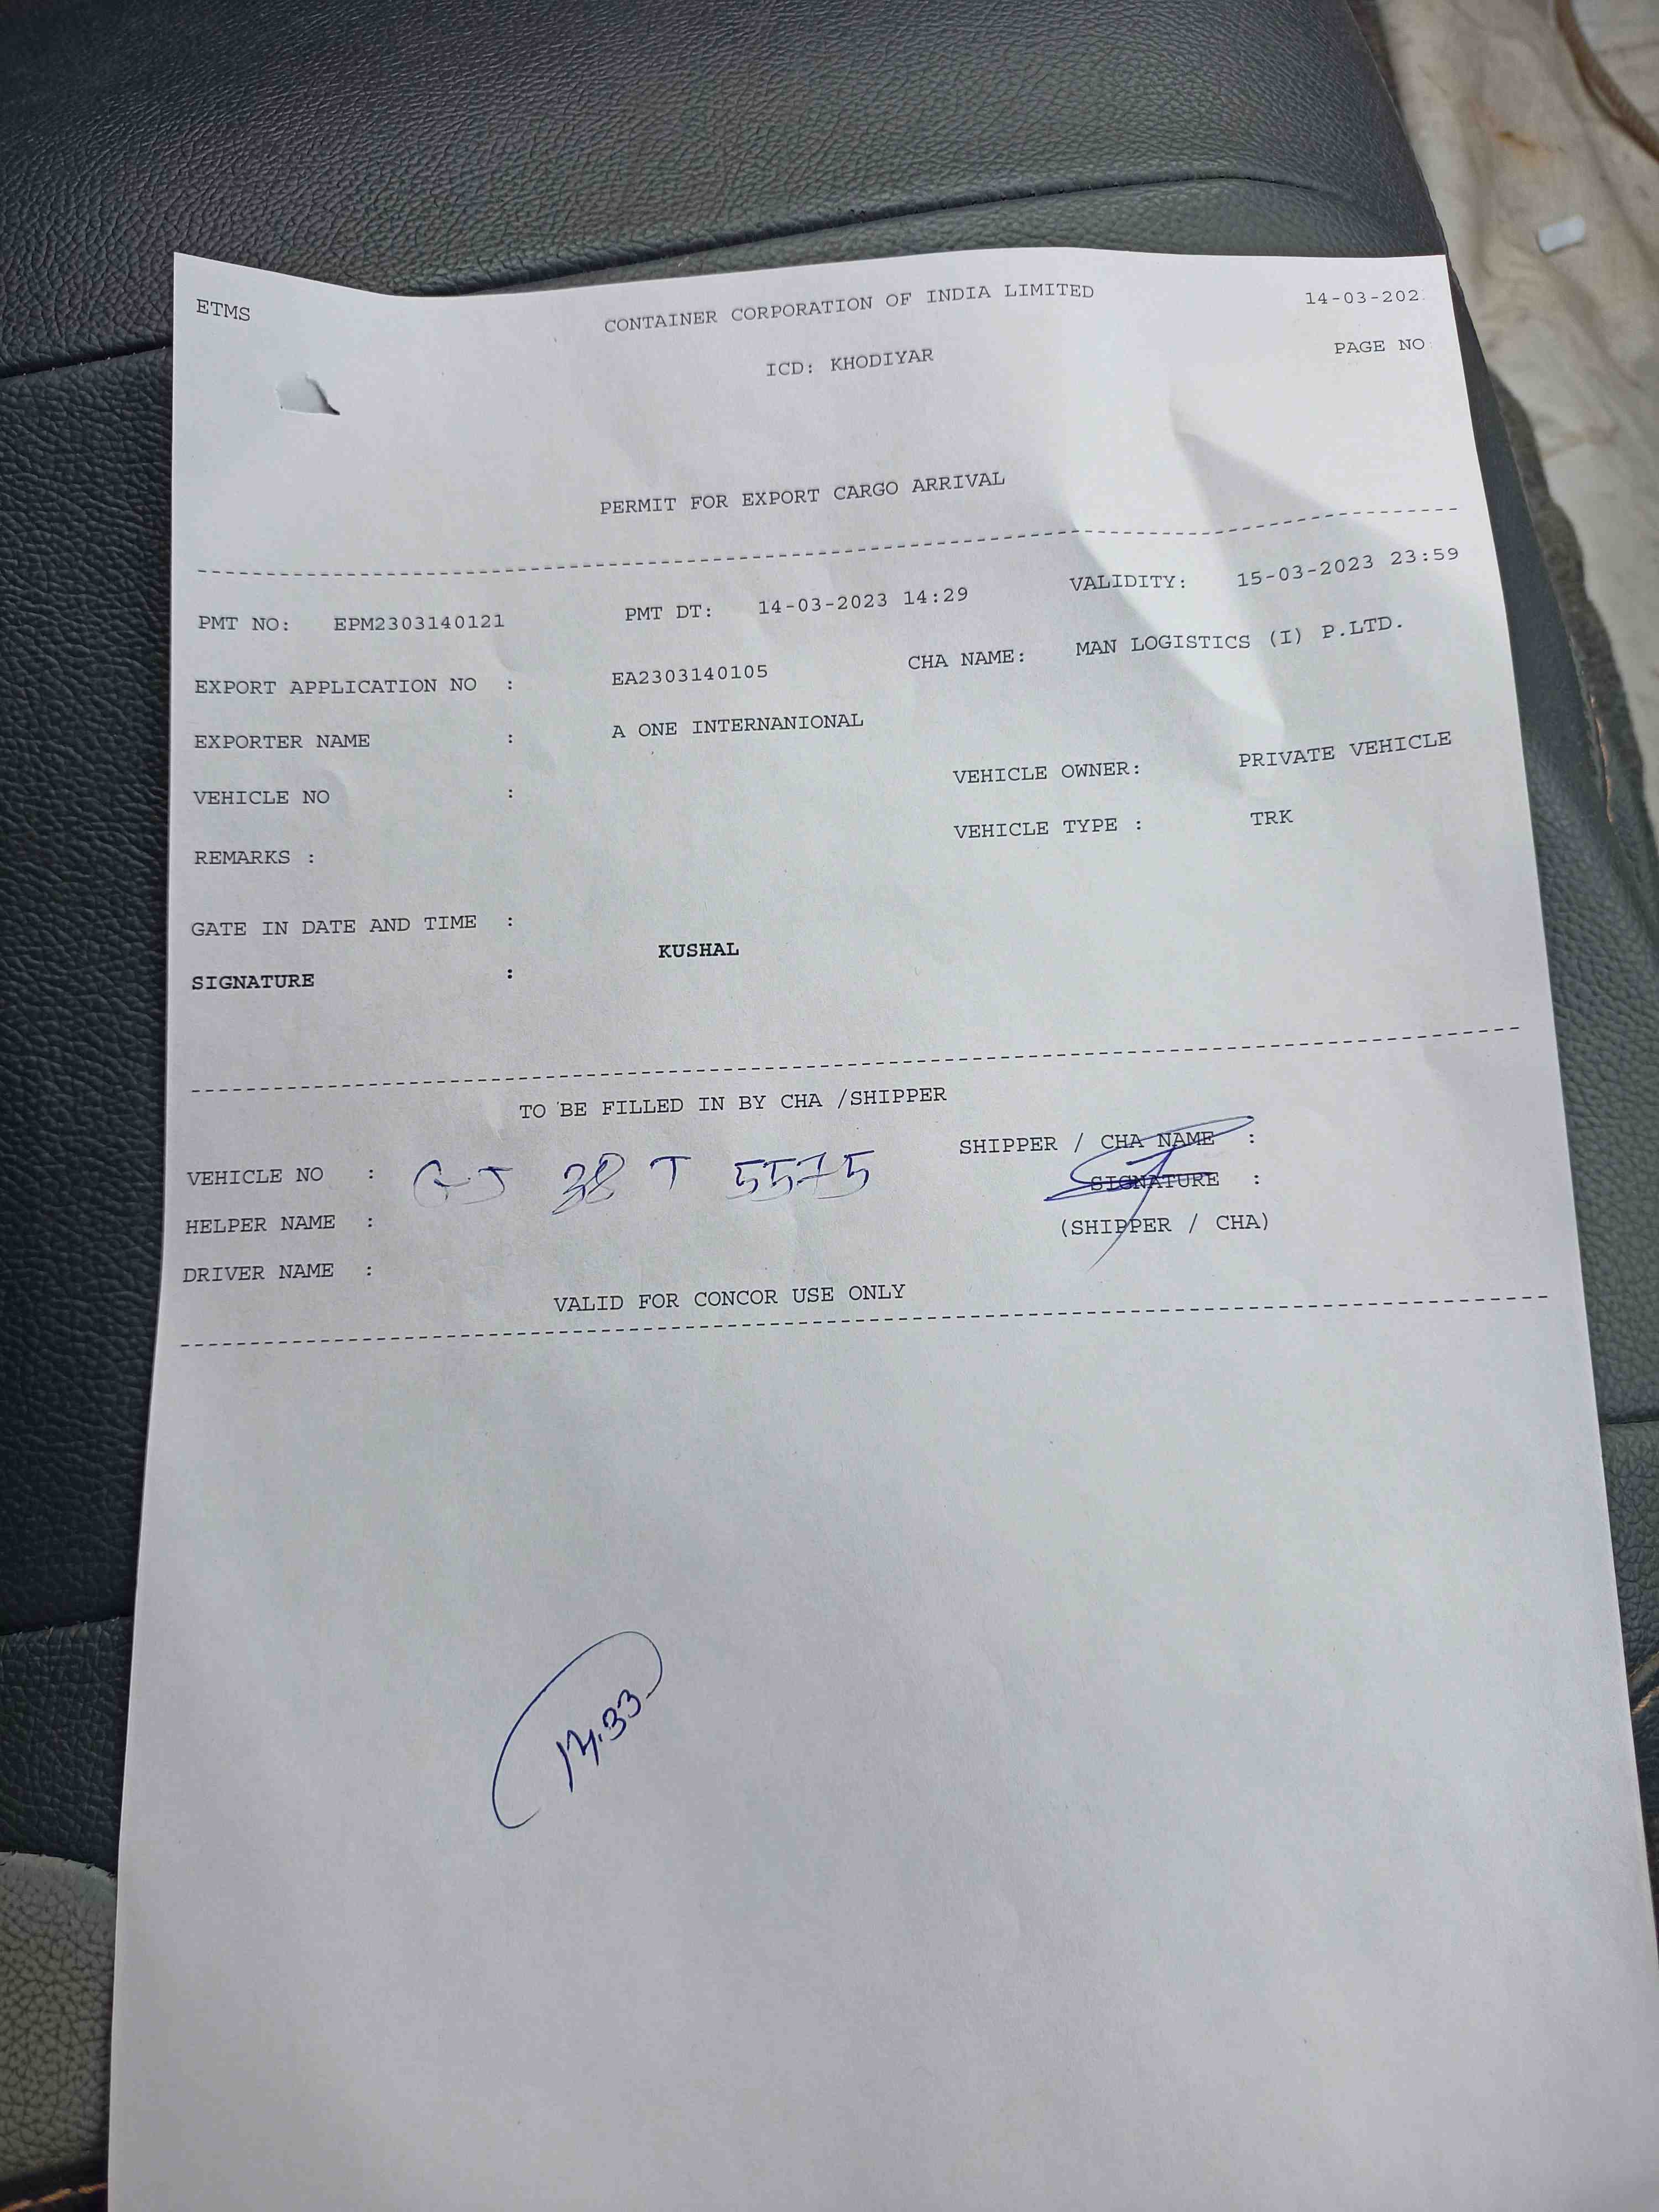 ETMS CONTAINER CORPORATION OF INDIA LIMITED 14-03-202
ICD: KHODIYAR PAGE NO
PERMIT FOR EXPORT CARGO ARRIVAL
PMT NO: EPM2303140121 PMT DT: 14-03-2023 14:29 VALIDITY: 15-03-2023 23:59
EXPORT APPLICATION NO : EA2303140105 CHA NAME: MAN LOGISTICS (I) P.LTD.
EXPORTER NAME : A ONE INTERNANIONAL
VEHICLE NO : VEHICLE OWNER: PRIVATE VEHICLE
REMARKS : VEHICLE TYPE : TRK
GATE IN DATE AND TIME :
SIGNATURE : KUSHAL
TO BE FILLED IN BY CHA /SHIPPER
VEHICLE NO : GJ 38 T 5575 SHIPPER / CHA NAME :
SIGNATURE :
HELPER NAME : (SHIPPER / CHA)
DRIVER NAME :
VALID FOR CONCOR USE ONLY